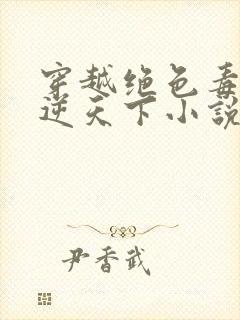 穿越绝色毒
逆天下小説
尹香武